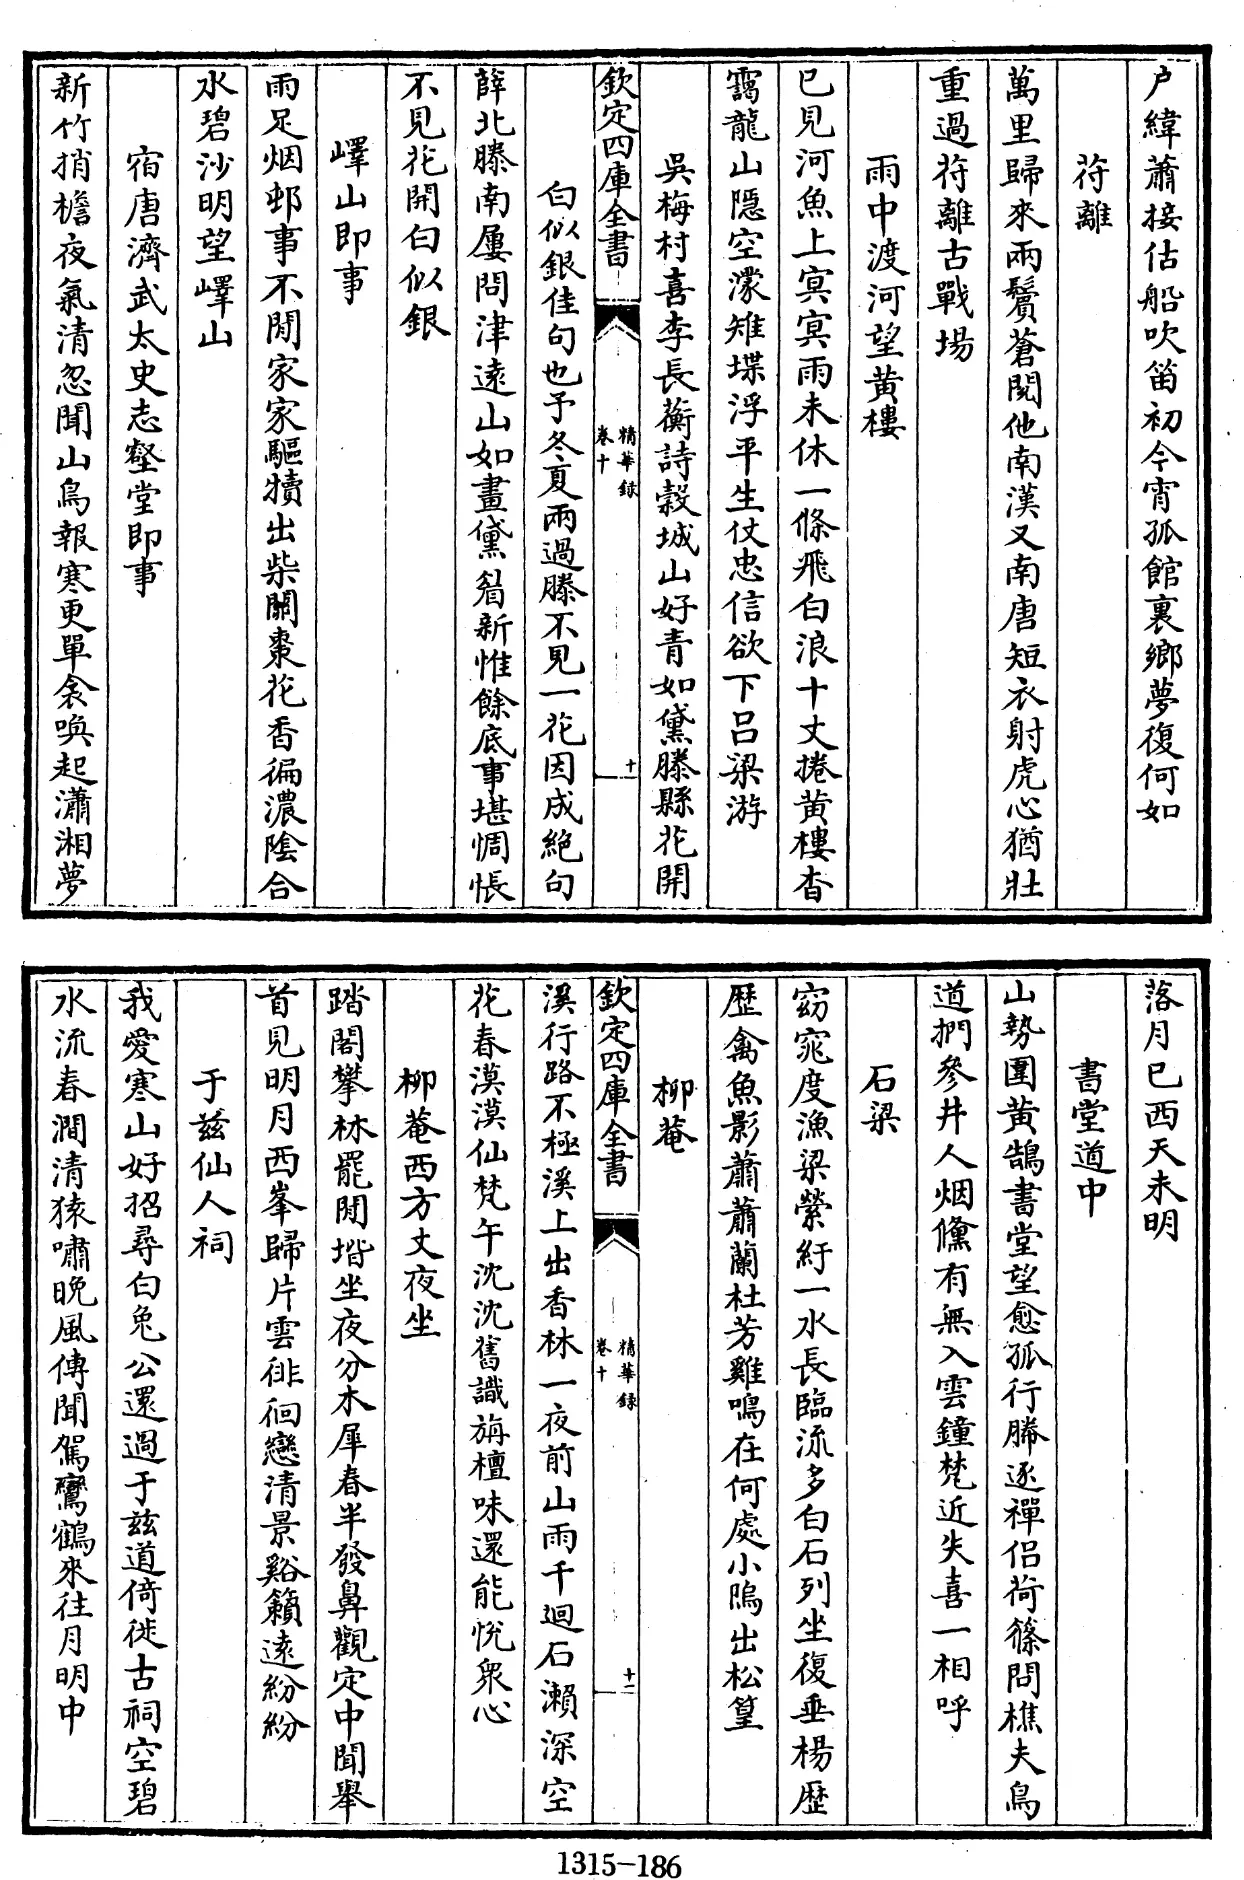 户緯蕭接估船吹笛初今宵孤館裏鄉夢復何如
符離
萬里歸來兩鬢蒼閱他南漢又南唐短衣射虎心猶壯
重過符離古戰場
雨中渡河望黃樓
已見河魚上冥冥雨未休一條飛白浪十丈捲黃樓杳
靄龍山隱空濛雉堞浮平生仗忠信欲下呂梁游
吳梅村喜李長蘅詩榖城山好青如黛滕縣花開
欽定四庫全書
精華録
卷十
十
白似銀佳句也予冬夏兩過滕不見一花因成絶句
薛北滕南屢問津遠山如畫黛眉新惟餘底事堪惆悵
不見花開白似銀
嶧山即事
雨足烟邨事不閒家家驅犢出柴關棗花香徧濃陰合
水碧沙明望嶧山
宿唐濟武太史志壑堂即事
新竹捎檐夜氣清忽聞山鳥報寒更單衾喚起瀟湘夢
落月已西天未明
書堂道中
山勢圍黃鵠書堂望愈孤行勝逐禪侣荷篠問樵夫鳥
道捫參井人烟儵有無入雲鐘梵近失喜一相呼
石梁
窈窕度漁梁縈紆一水長臨流多白石列坐復垂楊歴
歴禽魚影蕭蕭蘭杜芳雞鳴在何處小隖出松篁
柳菴
欽定四庫全書
精華録
卷十
十一
溪行路不極溪上出香林一夜前山雨千迴石瀨深空
花春漠漠仙梵午沈沈舊識旃檀味還能悅衆心
柳菴西方丈夜坐
踏閣攀林罷閒堦坐夜分木犀春半發鼻觀定中聞舉
首見明月西峯歸片雲徘徊戀清景谿籟遠紛紛
于兹仙人祠
我愛寒山好招尋白兎公還過于兹道倚徙古祠空碧
水流春澗清猿嘯晚風傳聞駕鸞鶴來往月明中
1315-186